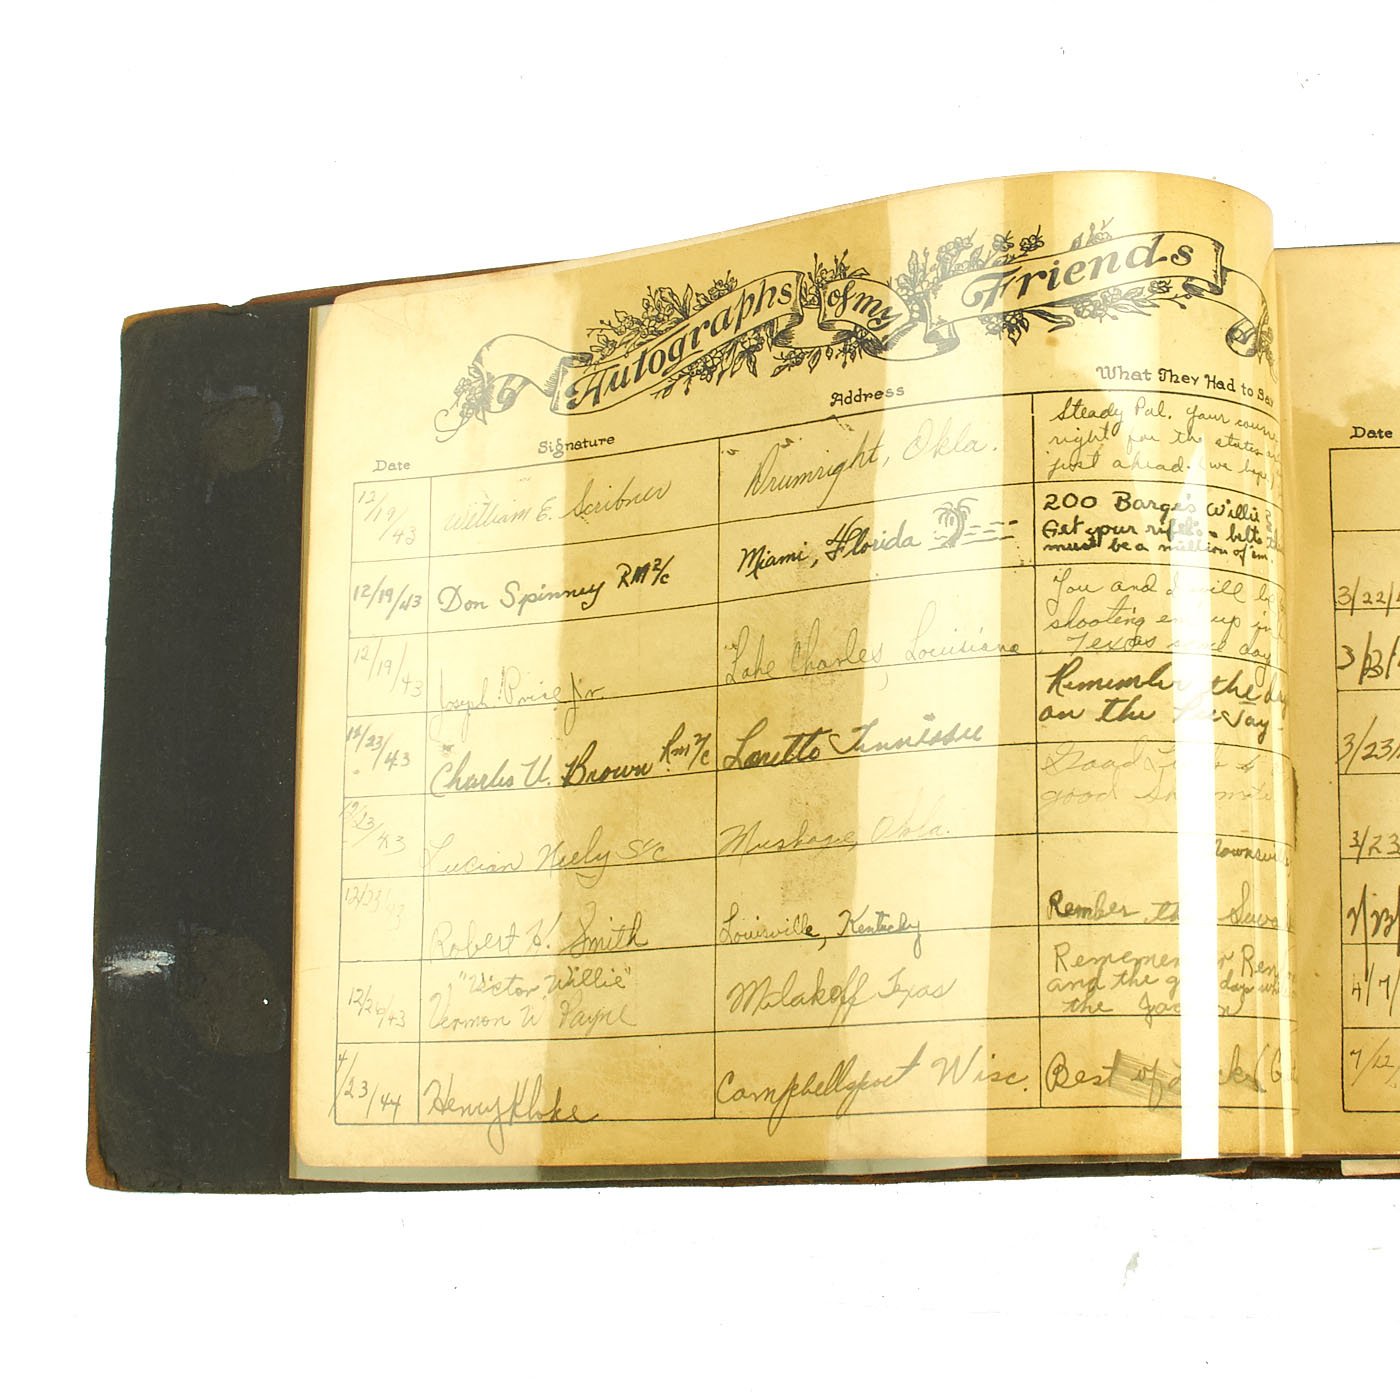 Autographs of my Friends
Date Signature Address What They Had to Say
12/19/43 William E. Scribner Drumright, Okla. Steady Pal. Your
right for the states
just ahead. (we hope)
12/19/43 Don Spinney RM 2/c Miami, Florida 200 Barges Willie
Get your rifle - belts
must be a million of 'em.
12/19/43 Joseph Price Jr. Lake Charles, Louisiana You and I will
shooting em up in
Texas some day
12/23/43 Charles V. Brown Rm 2/c Loretto Tennessee Remember the day
on the Jay
12/23/43 Lucian Neely S/c Okla. Good Luck to
good
12/23/43 Robert H. Smith Louisville, Kentucky Rember
12/26/43 "Victor Willie"
Vernon W Payne Malakoff Texas Rememember
and the days
the
4/23/44 Henry Kloke Campbellsport Wisc. Best of Luck
Date
3/22/
3/23/
3/23/
3/23
4/7/
7/12/